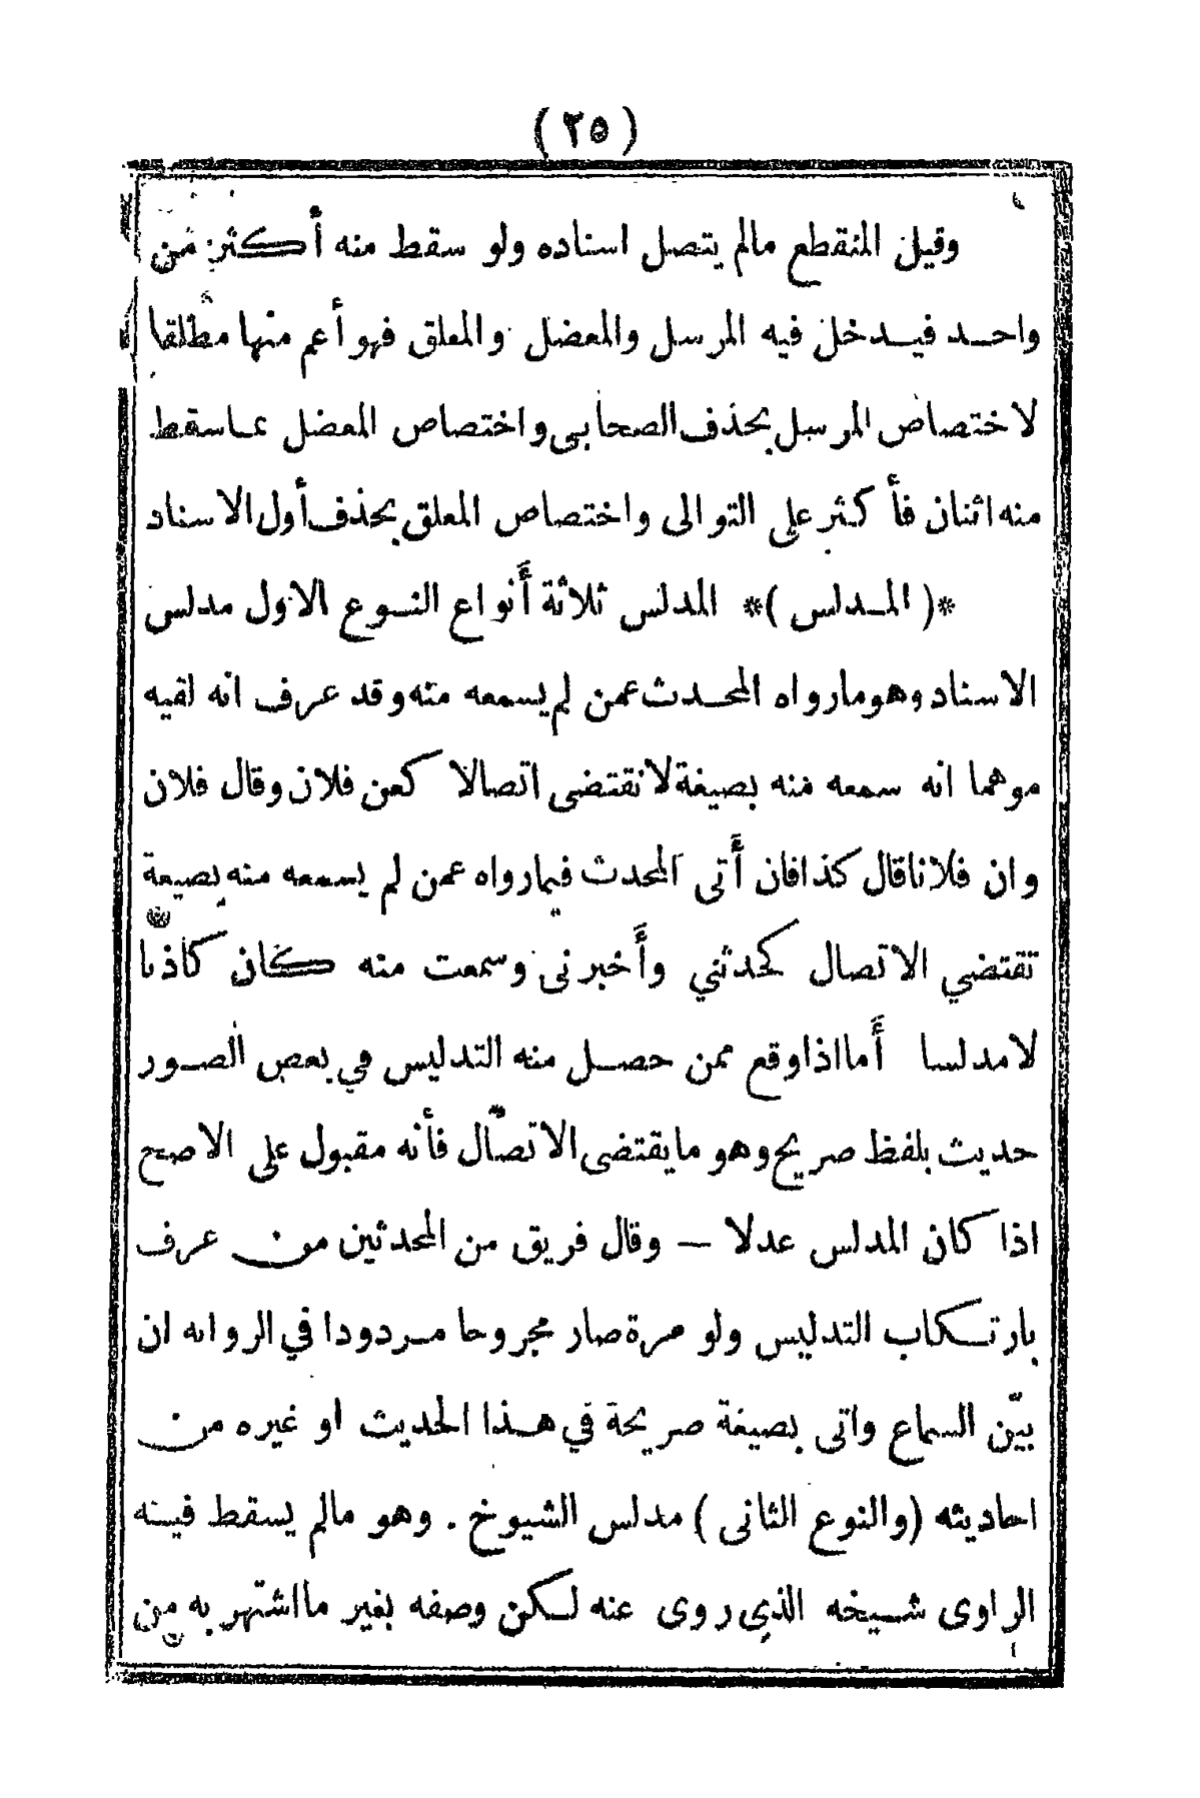 (٢٥)
وقيل المنقطع مالم يتصل اسناده ولو سقط منه أكثر من
واحد فيدخل فيه المرسل والمعضل والمعلق فهو أعم منها مطلقا
لاختصاص المرسل بحذف الصحابي واختصاص المعضل بما سقط
منه اثنان فأكثر على التوالى واختصاص المعلق بحذف أول الاسناد
*( المدلس )* المدلس ثلاثة أنواع النوع الاول مدلس
الاسناد وهو مارواه المحدث عمن لم يسمعه منه وقد عرف انه لقيه
موهما انه سمعه منه بصيغة لا تقتضى اتصالا كعن فلان وقال فلان
وان فلانا قال كذا فان أتى المحدث فيما رواه عمن لم يسمعه منه بصيغة
تقتضي الاتصال كحدثني وأخبرنى وسمعت منه كان كاذبا
لا مدلسا أما اذا وقع ممن حصل منه التدليس في بعض الصور
حديث بلفظ صريح وهو ما يقتضى الاتصال فأنه مقبول على الاصح
اذا كان المدلس عدلا — وقال فريق من المحدثين من عرف
بارتكاب التدليس ولو مرة صار مجروحا مردودا في الرواية ان
بيّن السماع واتى بصيغة صريحة في هذا الحديث او غيره من
احاديثه (والنوع الثانى) مدلس الشيوخ . وهو مالم يسقط فيه
الراوى شيخه الذي روى عنه لكن وصفه بغير ما اشتهر به من